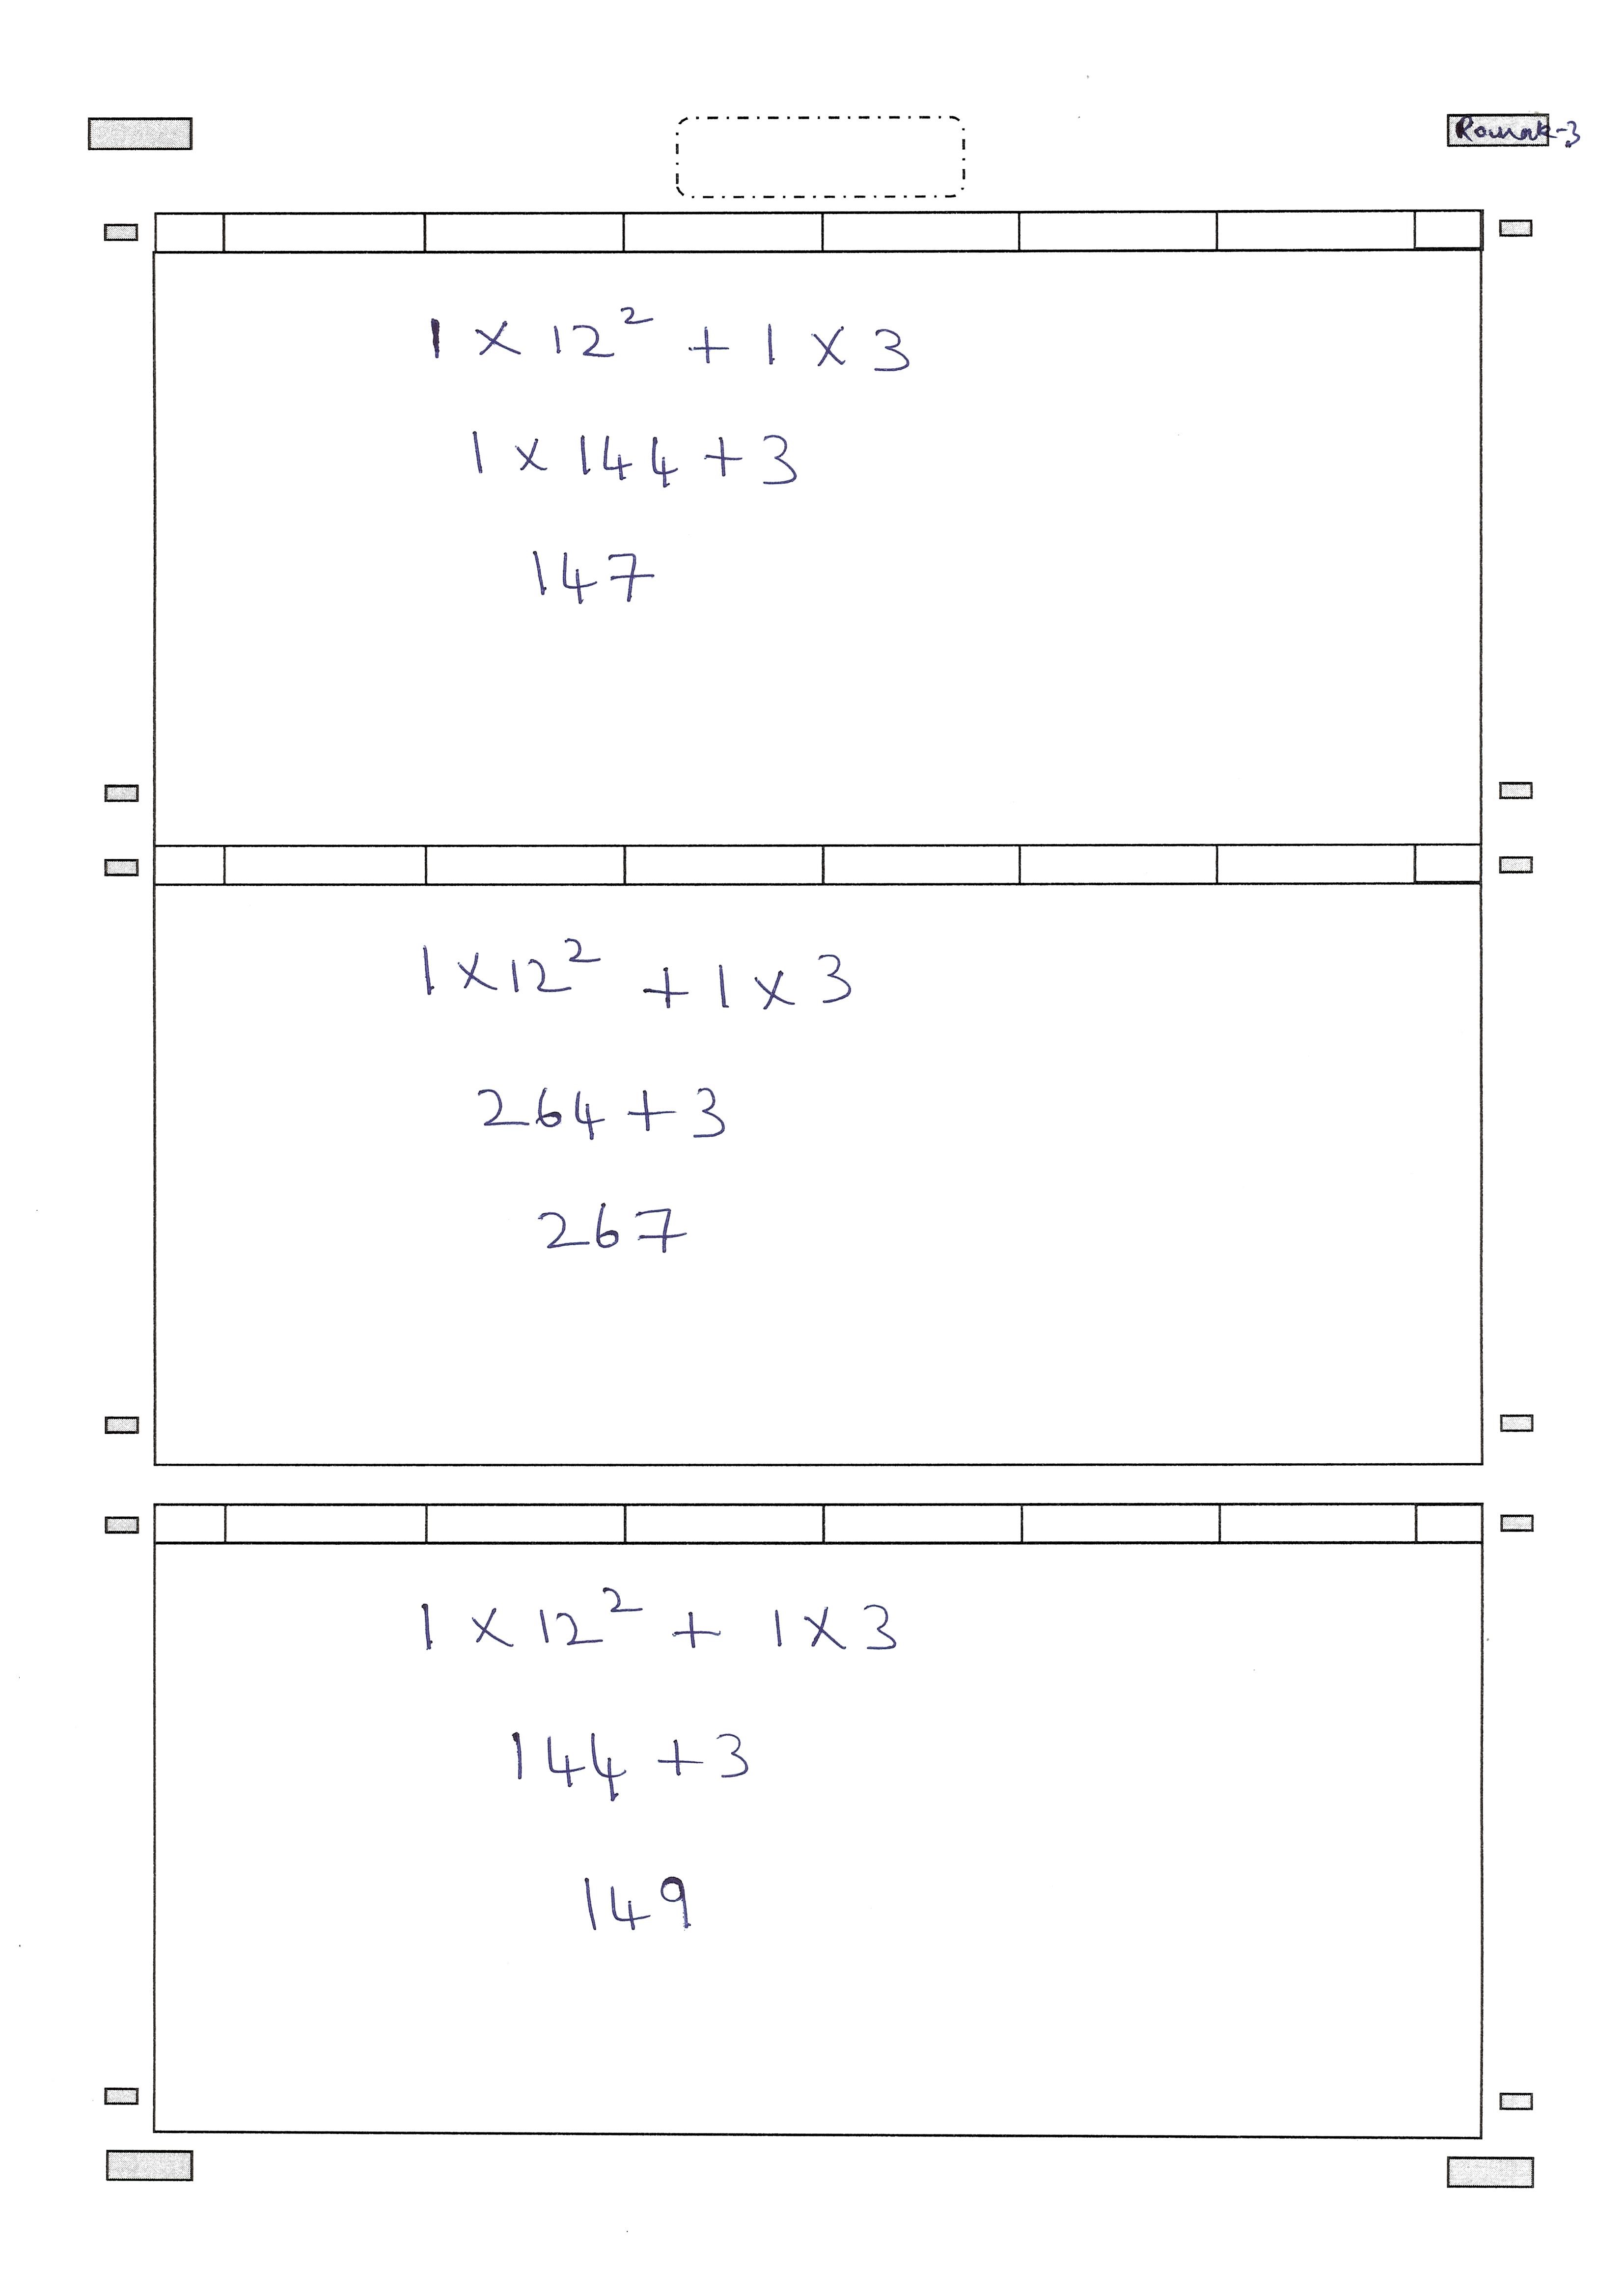 Rounak-3
1 × 12² + 1 × 3
1 × 144 + 3
147
1 × 12² + 1 × 3
264 + 3
267
1 × 12² + 1 × 3
144 + 3
149